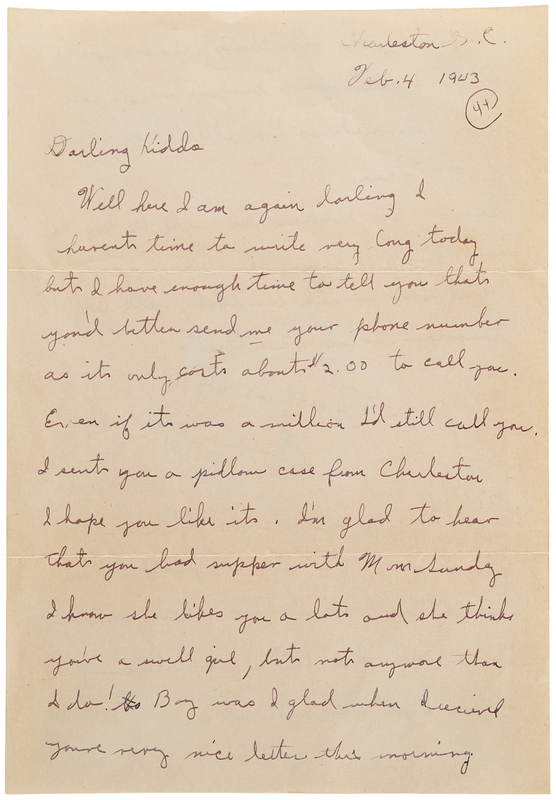 Charleston S.C.
Feb. 4 1943
44
Darling Kiddo
Well here I am again darling I
havent time to write very long today
but I have enough time to tell you that
you'd better send me your phone number
as it only costs about $2.00 to call you.
Even if it was a million I'd still call you.
I sent you a pillow case from Charleston
I hope you like it. I'm glad to hear
that you had supper with Mom Sunday
I know she likes you a lot and she thinks
you're a swell girl, but not anymore than
I do! Boy was I glad when I recieved
youre very nice letter this morning.